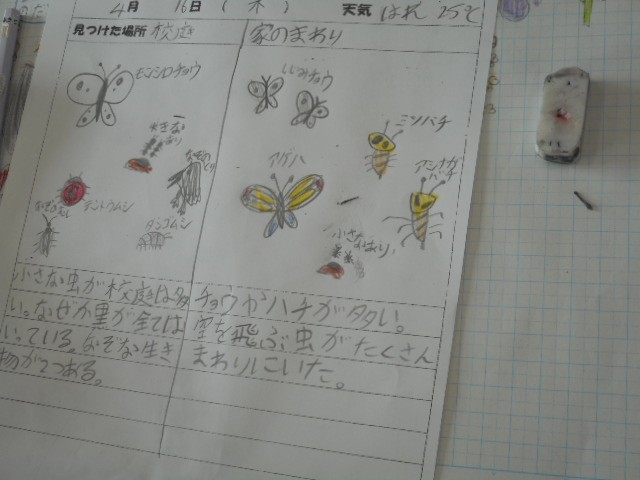 4月 16日 (木) 天気 はれ 25℃
見つけた場所 校庭
家のまわり
モンシロチョウ
大きな
あり
テントウムシ
ダンゴムシ
小さな虫が校庭は多
い。なぜか黒が全ては
いている。なぞな生き
物が2つある。
しじみチョウ
ミツバチ
アゲハ
アシナガ
バチ
小さなあり
チョウかハチが多い。
空を飛ぶ虫がたくさん
まわりにいた。